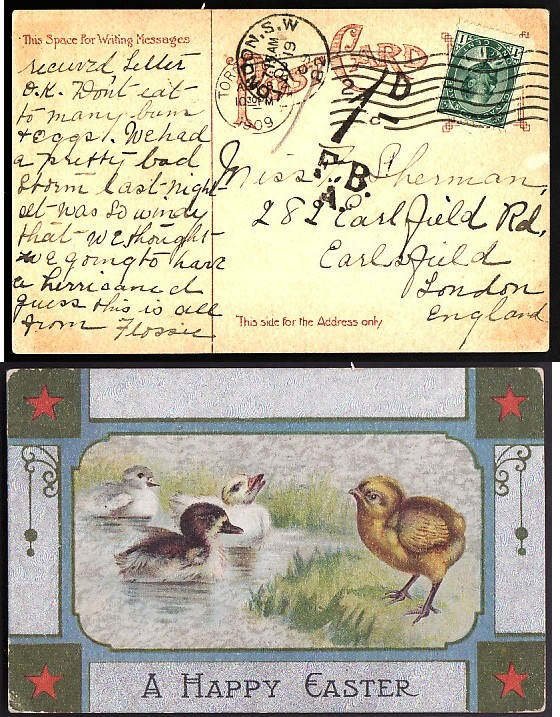 This Space for Writing Messages
CARD
recieved letter
O.K. Don't eat
to many buns
& eggs. We had
a pretty bad
storm last night
it was so windy
that we thought
we going to have
a herricane d
guess this is all
from Flossie
LONDON, S.W
AM
19
09
TOR
10 PM
1909
1D
P.B.
A.
Miss Sherman,
282 Earlfield Rd,
Earlsfield
London
England
This side for the Address only
A HAPPY EASTER